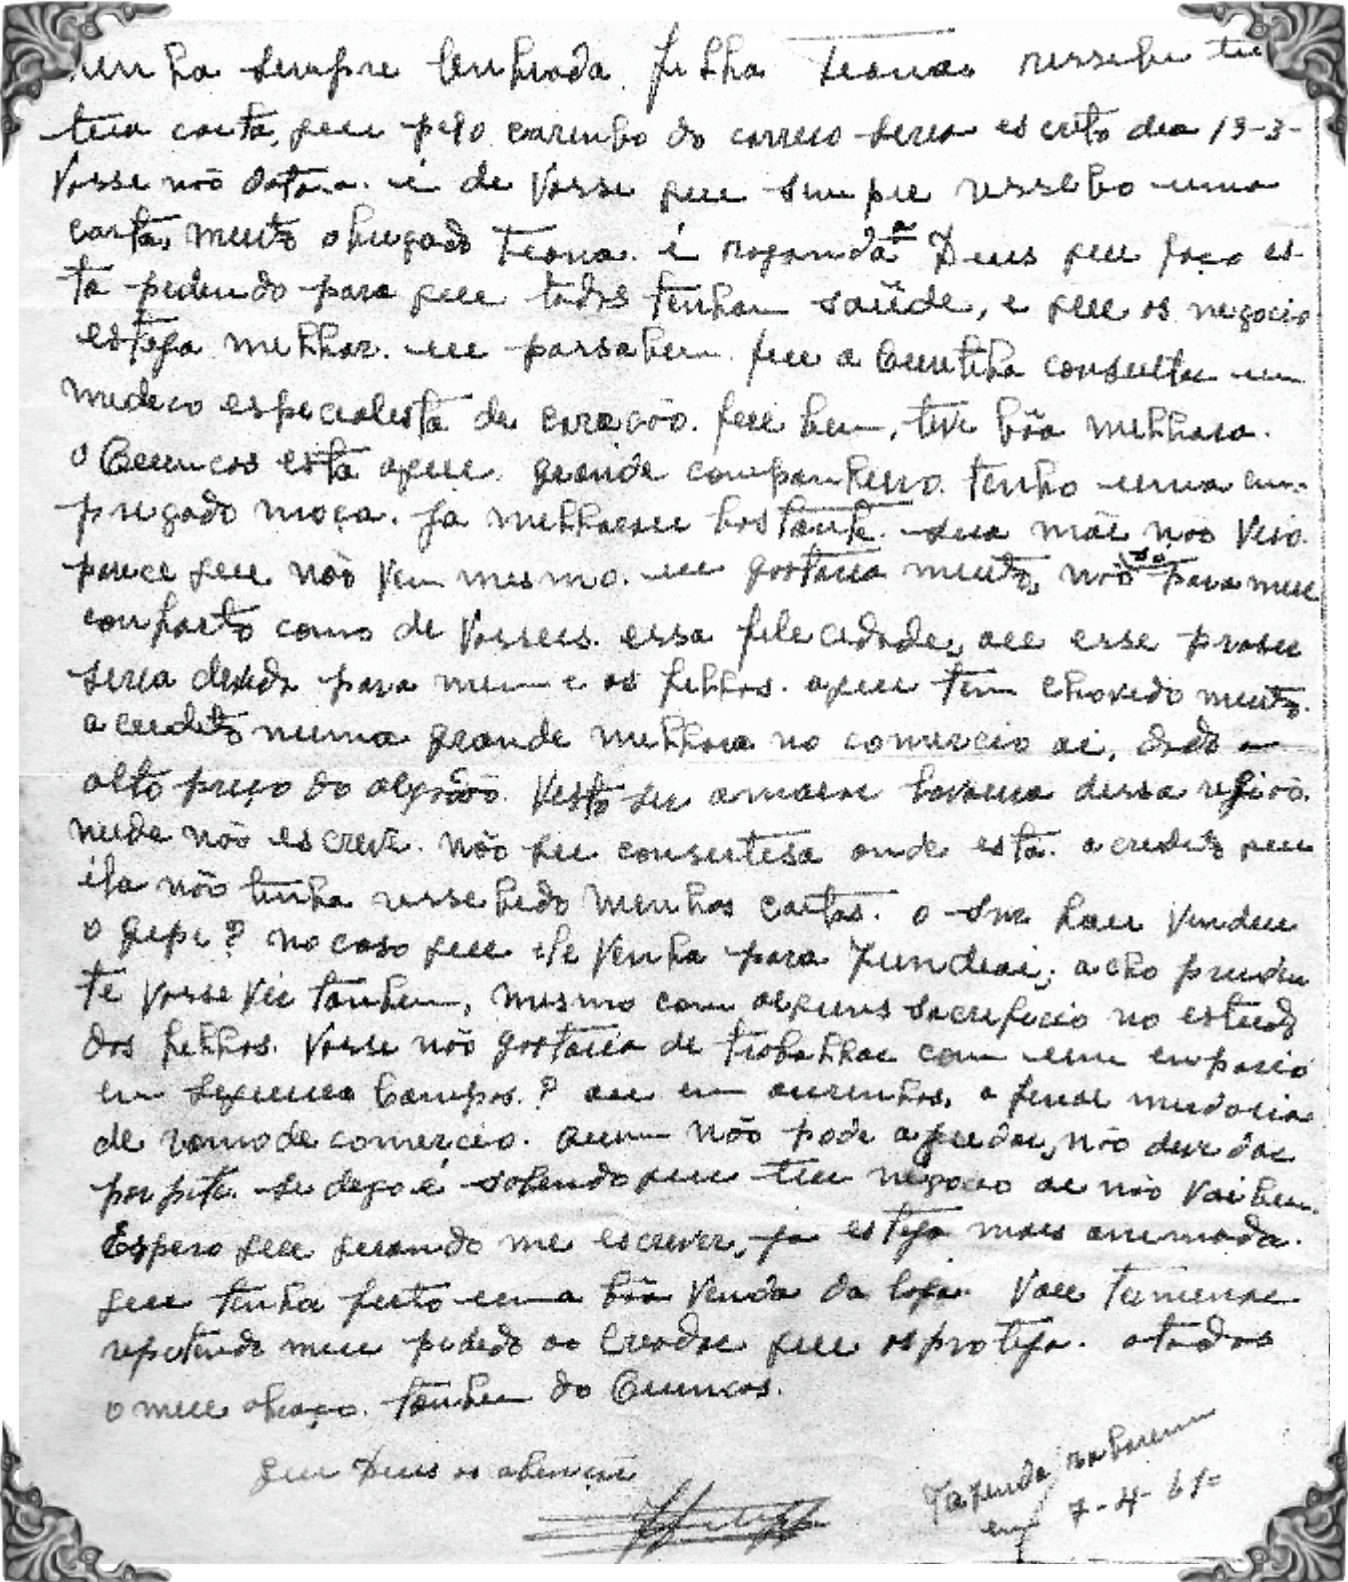 minha sempre lembrada filha Leana. ressebi
tua carta, que pelo carimbo do correio seria escrito dia 13-3-
Vosse não datara. é de Vosse que sempre ressebo uma
carta, muito obrigado Leana. é rogando a Deus que faço es-
ta pedindo para que todos tenham saúde, e que os negocio
esteja melhhor. me parsa bem que a consulta um
medico especialista de coração. fee bem, teve bôa melhhora.
o esta aqui. grande companheiro. tenho uma em-
pregado moça. ja melhhorou bastante. sua mãe não Veio.
parece que não Vem mesmo. eu gostaria muito, não só para meu
conforto como de Vosseis. essa felicidade, ou esse praser
seria devido para mim e os filhhos. aqui tem chovido muito.
acredito numa grande melhhora no comercio ai, dado o
alto preço do algodão. Visto ser a maior lavoura dessa região.
neide não escreve. não sei con certesa onde está. acredito que
ela não tenha ressebido minhas cartas. o Snr. Vendeu
o gipi? no caso que ele Venha para Jundiai; acho pruden
te Vosse Vir tambem, mesmo com alguns sacrificio no estudo
dos filhhos. Vosse não gostaria de trabalhhar com um emporio
em Siqueira Campos? ou em ourinhos, a final mudaria
de ramo de comercio. quem não pode ajudar, não deve dar
palpite. se digo é sabendo que teu negocio ai não Vai bem.
Espero que quando me escrever, ja esteja mais animada.
que tenha feito uma bôa Venda da loja. Vou terminar
repetindo meu pedido ao Creador que os proteja. a todos
o meu abraço. tambem do
que Deus os abençoe
Fazenda
em 7-4-61=